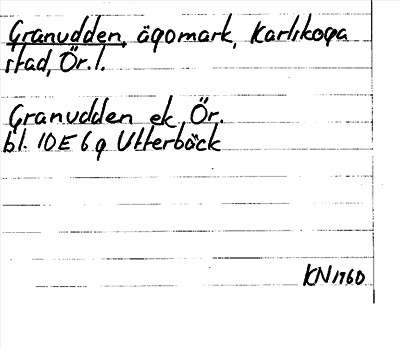 Granudden, ägomark, Karlskoga
stad, Ör. l.
Granudden ek, Ör.
bl. 10E6g Utterbäck
KN1760